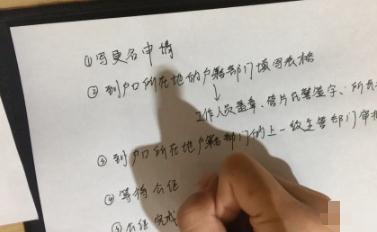 ①写更名申请
②到户口所在地的户籍部门填写表格
↓
工作人员盖章、管片民警签字、所长
③到户口所在地户籍部门的上一级主管部门审批
④等待公征
⑤公征完成